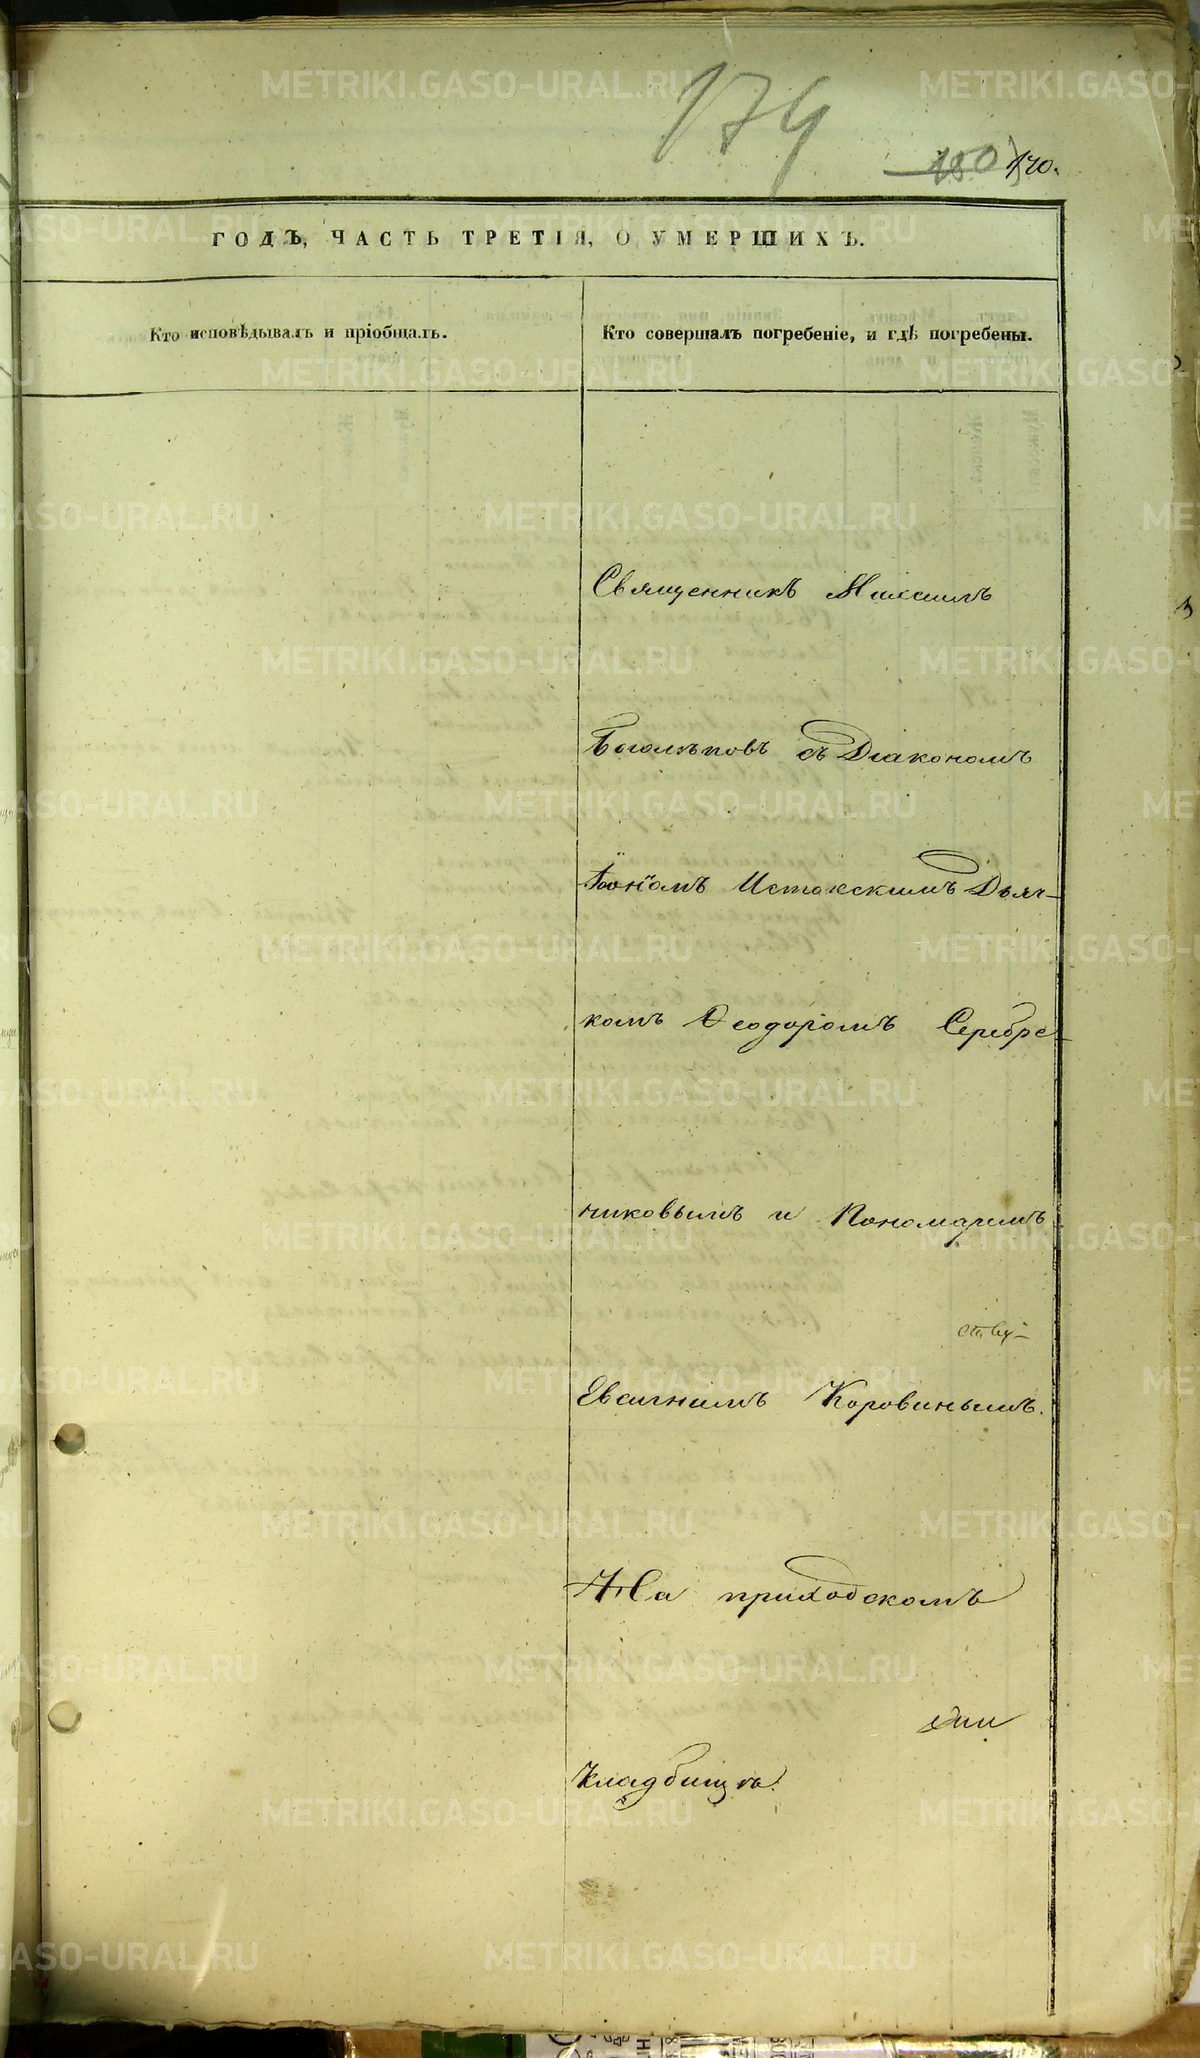 174
180 170.
ГОДЪ, ЧАСТЬ ТРЕТІЯ, О УМЕРШИХЪ.
Кто исповѣдывалъ и пріобщалъ.
Кто совершалъ погребеніе, и гдѣ погребены.
Священникъ Михаилъ
Боголѣповъ съ Діакономъ
Іоной Истокскимъ Дьяч-
комъ Ѳеодоромъ Серебре-
никовымъ и Пономаремъ
Евсигніемъ Коровинымъ.
На приходскомъ
кладбищѣ.
METRIKI.GASO-URAL.RU